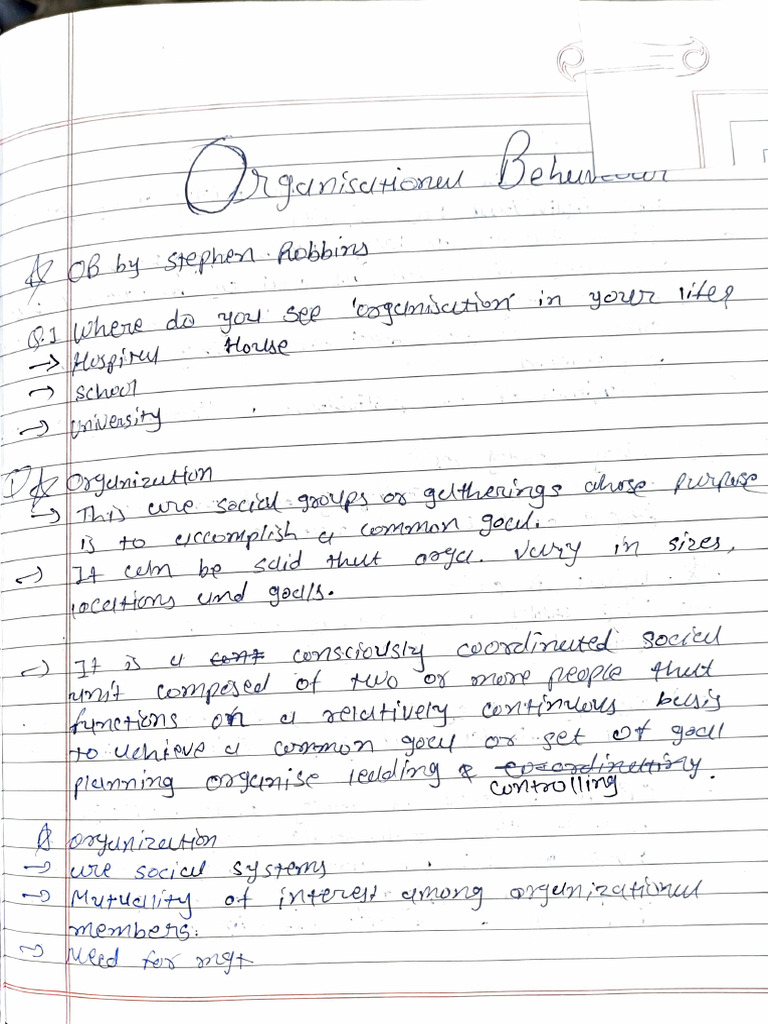 Organisational Behaviour
☆ OB by Stephen Robbins
Q.1 Where do you see 'organisation' in your life?
→ Hospital House
→ School
→ University
1) ☆ Organization
→ This are social groups or gatherings whose purpose
is to accomplish a common goal.
→ It can be said that orga. vary in sizes,
locations and goals.
→ It is a cont consciously coordinated social
unit composed of two or more people that
functions on a relatively continuous basis
to achieve a common goal or set of goal
planning organise leading & coordinating.
controlling
☆ organization
→ are social systems
→ Mutuality of interest among organizational
members.
→ Need for mgt